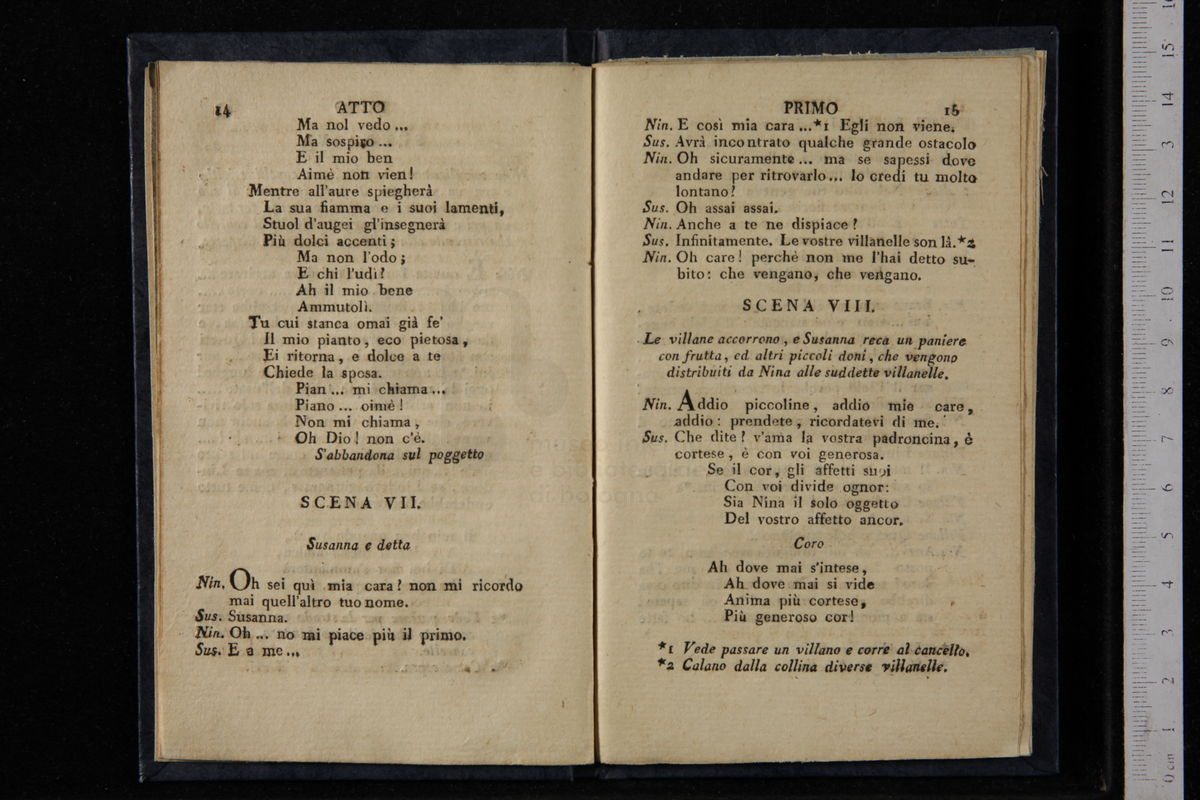 14 ATTO
Ma nol vedo ...
Ma sospiro ...
E il mio ben
Aimè non vien!
Mentre all'aure spiegherà
La sua fiamma e i suoi lamenti,
Stuol d'augei gl'insegnerà
Più dolci accenti;
Ma non l'odo;
E chi l'udì?
Ah il mio bene
Ammutolì.
Tu cui stanca omai già fe'
Il mio pianto, eco pietosa,
Ei ritorna, e dolce a te
Chiede la sposa.
Pian ... mi chiama ...
Piano ... oimè!
Non mi chiama,
Oh Dio! non c'è.
S'abbandona sul poggetto
SCENA VII.
Susanna e detta
Nin. Oh sei quì mia cara? non mi ricordo
mai quell'altro tuo nome.
Sus. Susanna.
Nin. Oh ... no mi piace più il primo.
Sus. E a me ...
PRIMO 15
Nin. E così mia cara ...*1 Egli non viene.
Sus. Avrà incontrato qualche grande ostacolo
Nin. Oh sicuramente ... ma se sapessi dove
andare per ritrovarlo ... lo credi tu molto
lontano?
Sus. Oh assai assai.
Nin. Anche a te ne dispiace?
Sus. Infinitamente. Le vostre villanelle son là.*2
Nin. Oh care! perchè non me l'hai detto su-
bito: che vengano, che vengano.
SCENA VIII.
Le villane accorrono, e Susanna reca un paniere
con frutta, ed altri piccoli doni, che vengono
distribuiti da Nina alle suddette villanelle.
Nin. Addio piccoline, addio mie care,
addio: prendete, ricordatevi di me.
Sus. Che dite? v'ama la vostra padroncina, è
cortese, è con voi generosa.
Se il cor, gli affetti suoi
Con voi divide ognor:
Sia Nina il solo oggetto
Del vostro affetto ancor.
Coro
Ah dove mai s'intese,
Ah dove mai si vide
Anima più cortese,
Più generoso cor!
*1 Vede passare un villano e corre al cancello.
*2 Calano dalla collina diverse villanelle.